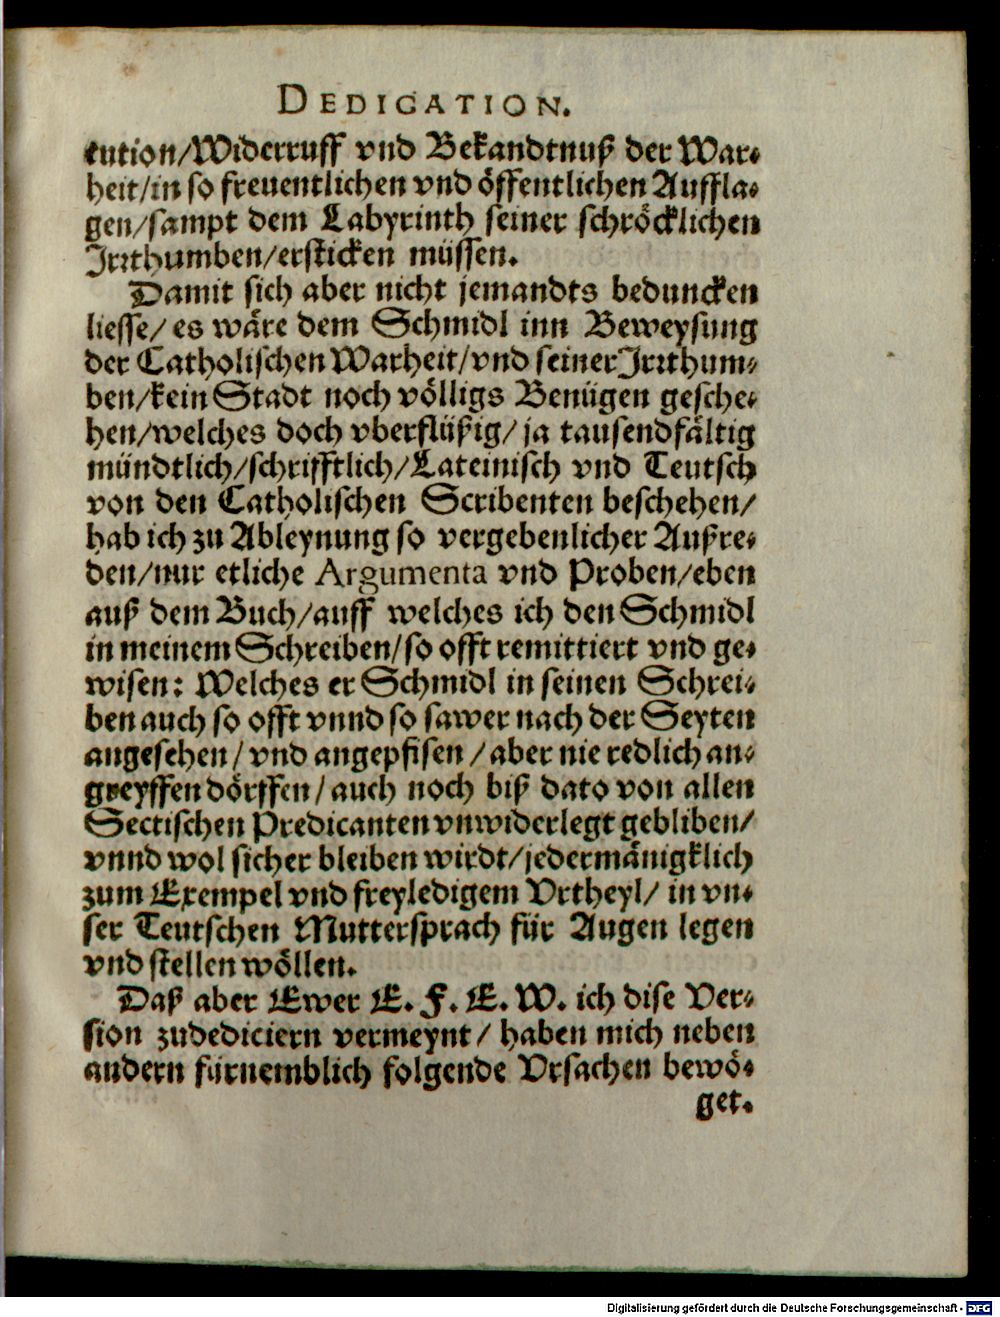 DEDICATION.
tution/Widerruff vnd Bekandtnuß der War-
heit/in so freuentlichen vnd öffentlichen Auffla-
gen/sampt dem Labyrinth seiner schröcklichen
Irrthumben/ersticken müssen.
Damit sich aber nicht jemandts beduncken
liesse/ es wäre dem Schmidl inn Beweysung
der Catholischen Warheit/vnd seiner Irrthum-
ben/kein Stadt noch völligs Benügen gesche-
hen/welches doch vberflüßig/ ja tausendfältig
mündtlich/schrifftlich/Lateinisch vnd Teutsch
von den Catholischen Scribenten beschehen/
hab ich zu Ableynung so vergebenlicher Außre-
den/nur etliche Argumenta vnd Proben/eben
auß dem Buch/auff welches ich den Schmidl
in meinem Schreiben/so offt remittiert vnd ge-
wisen: Welches er Schmidl in seinen Schrei-
ben auch so offt vnnd so sawer nach der Seyten
angesehen/ vnd angepfisen /aber nie redlich an-
greyffen dörffen/ auch noch biß dato von allen
Sectischen Predicanten vnwiderlegt gebliben/
vnnd wol sicher bleiben wirdt/jedermänigklich
zum Exempel vnd freyledigem Vrtheyl/ in vn-
ser Teutschen Muttersprach für Augen legen
vnd stellen wöllen.
Daß aber Ewer E. F. E. W. ich dise Ver-
sion zudediciern vermeynt/ haben mich neben
andern fürnemblich folgende Vrsachen bewö-
get.
Digitalisierung gefördert durch die Deutsche Forschungsgemeinschaft - DFG